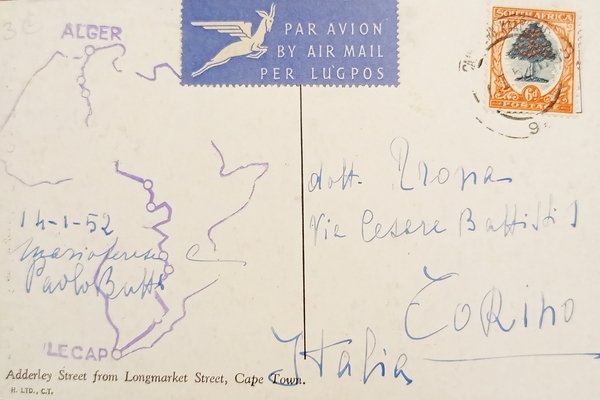 3
ALGER
PAR AVION
BY AIR MAIL
PER LUGPOS
SOUTH AFRICA
6d
POSTA
9
14-1-52
Mariateresa
Paolo
LE CAP
dott.
Via Cesare Battisti 1
Torino
Italia
Adderley Street from Longmarket Street, Cape Town.
H. LTD., C.T.